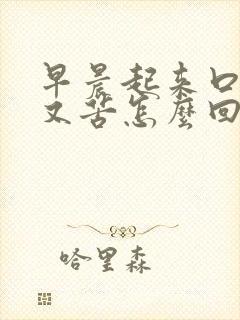 早晨起来口
又苦怎麽回
哈里森